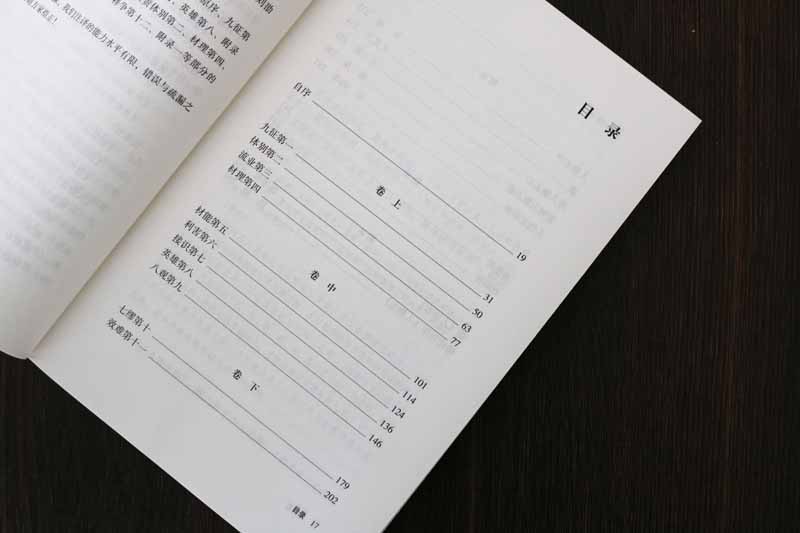 则助
原序、九征第
、英雄第八、附录
体别第二、材理第四、
争第十二、附录一等部分的
，我们注译的能力水平有限，错误与疏漏之
目 录
自序 19
卷 上
九征第一 31
体别第二 50
流业第三 63
材理第四 77
卷 中
材能第五 101
利害第六 114
接识第七 124
英雄第八 136
八观第九 146
卷 下
七缪第十 179
效难第十一 202
目录 17